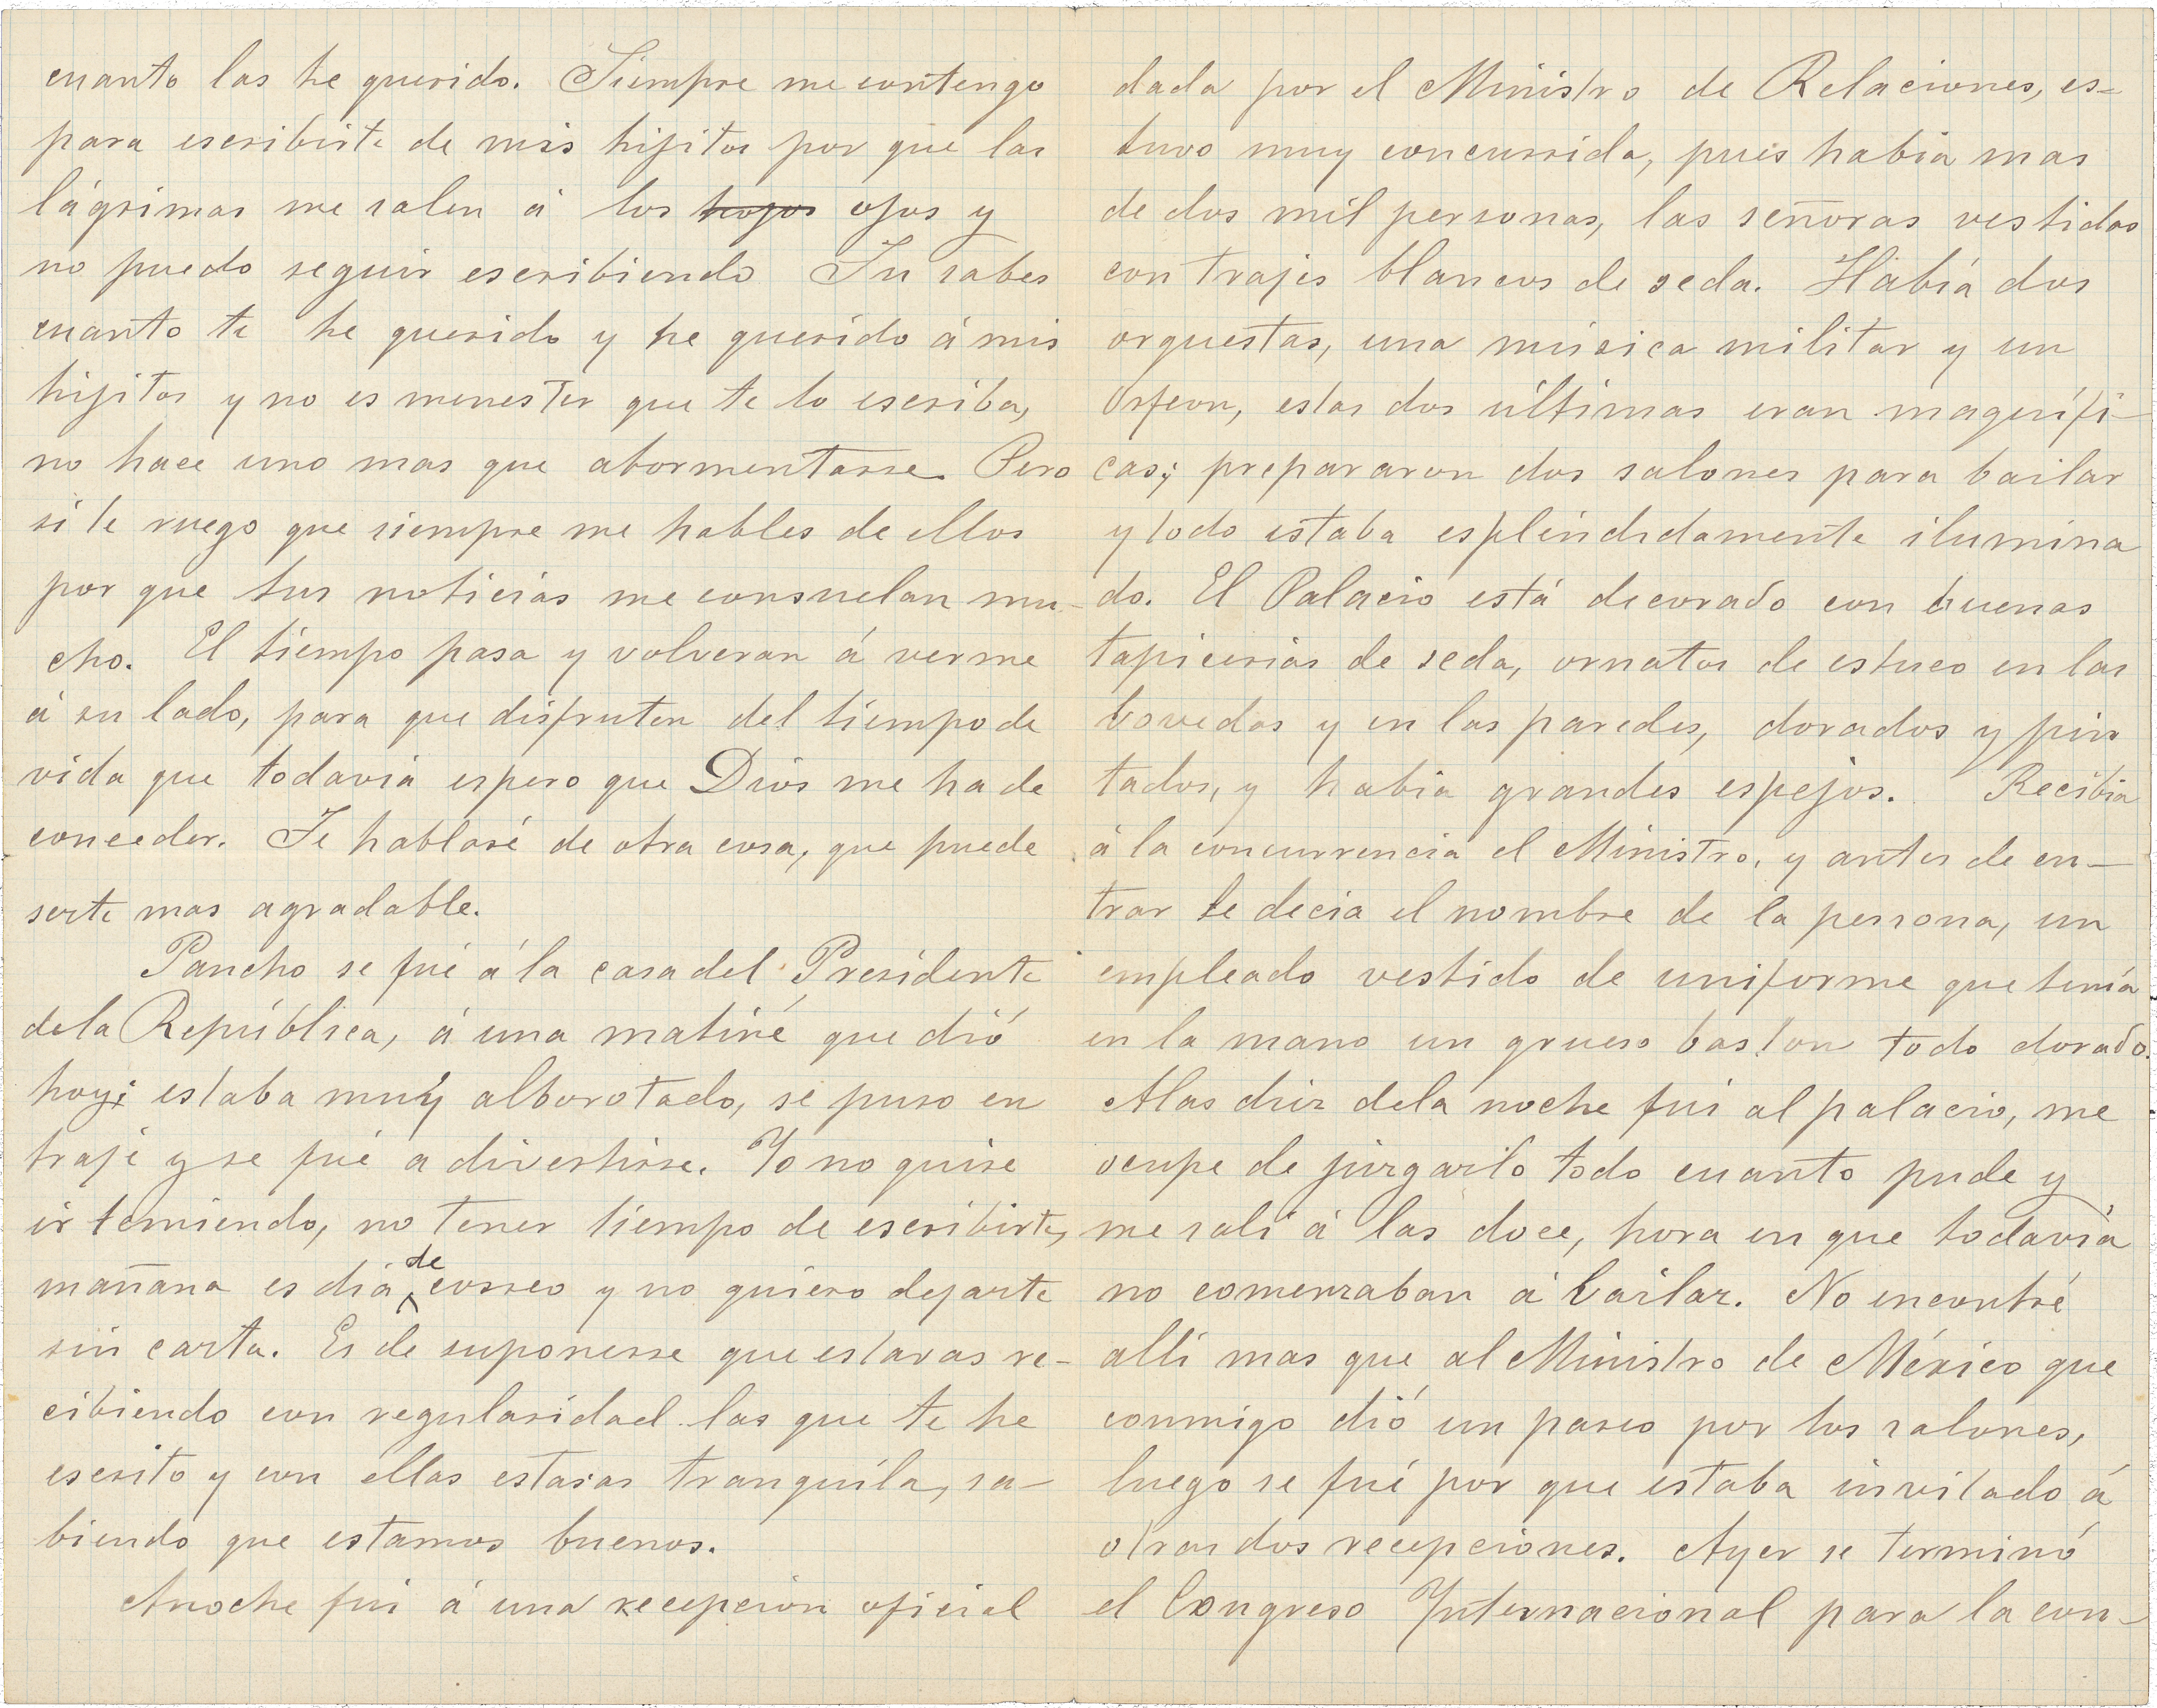 cuanto las he querido. Siempre me contengo
para escribirte de mis hijitos por que las
lágrimas me salen á los hojos ojos y
no puedo seguir escribiendo Tu sabes
cuanto te he querido y he querido á mis
hijitos y no es menester que te lo escriba,
no hace uno mas que atormentarse. Pero
si te ruego que siempre me hables de ellos
por que tus noticias me consuelan mu-
cho. El tiempo pasa y volveran á verme
á su lado, para que disfruten del tiempo de
vida que todavia espero que Dios me ha de
conceder. Te hablaré de otra cosa, que puede
serte mas agradable.
Pancho se fué á la casa del Presidente
de la República, á una matiné que dió
hoy; estaba muy alborotado, se puso en
traje y se fué a divertirse. Yo no quise
ir temiendo, no tener tiempo de escribirte,
mañana es dia de correo y no quiero dejarte
sin carta. Es de suponerse que estaras re-
cibiendo con regularidad las que te he
escrito y con ellas estaras tranquila, sa-
biendo que estamos buenos.
Anoche fui á una recepción oficial
dada por el Ministro de Relaciones, es-
tuvo muy concurrida, pues habia mas
de dos mil personas, las señoras vestidas
con trajes blancos de seda. Habiá dos
orquestas, una música militar y un
Orfeon, estas dos últimas eran magnífi-
cas; prepararon dos salones para bailar
y todo estaba espléndidamente ilumina
do. El Palacio está decorado con buenas
tapicerias de seda, ornatos de estuco en las
bovedas y en las paredes, dorados y pin
tados, y habia grandes espejos. Recibia
á la concurrencia el Ministro, y antes de en-
trar le decia el nombre de la persona, un
empleado vestido de uniforme que tenía
en la mano un grueso baston todo dorado.
A las diez de la noche fui al palacio, me
ocupe de juzgarlo todo cuanto pude y
me salí á las doce, hora en que todavía
no comenzaban á bailar. No encontré
alli mas que al Ministro de México que
conmigo dió un paseo por los salones,
luego se fué por que estaba invitado á
otras dos recepciones. Ayer se terminó
el Congreso Internacional para la con-